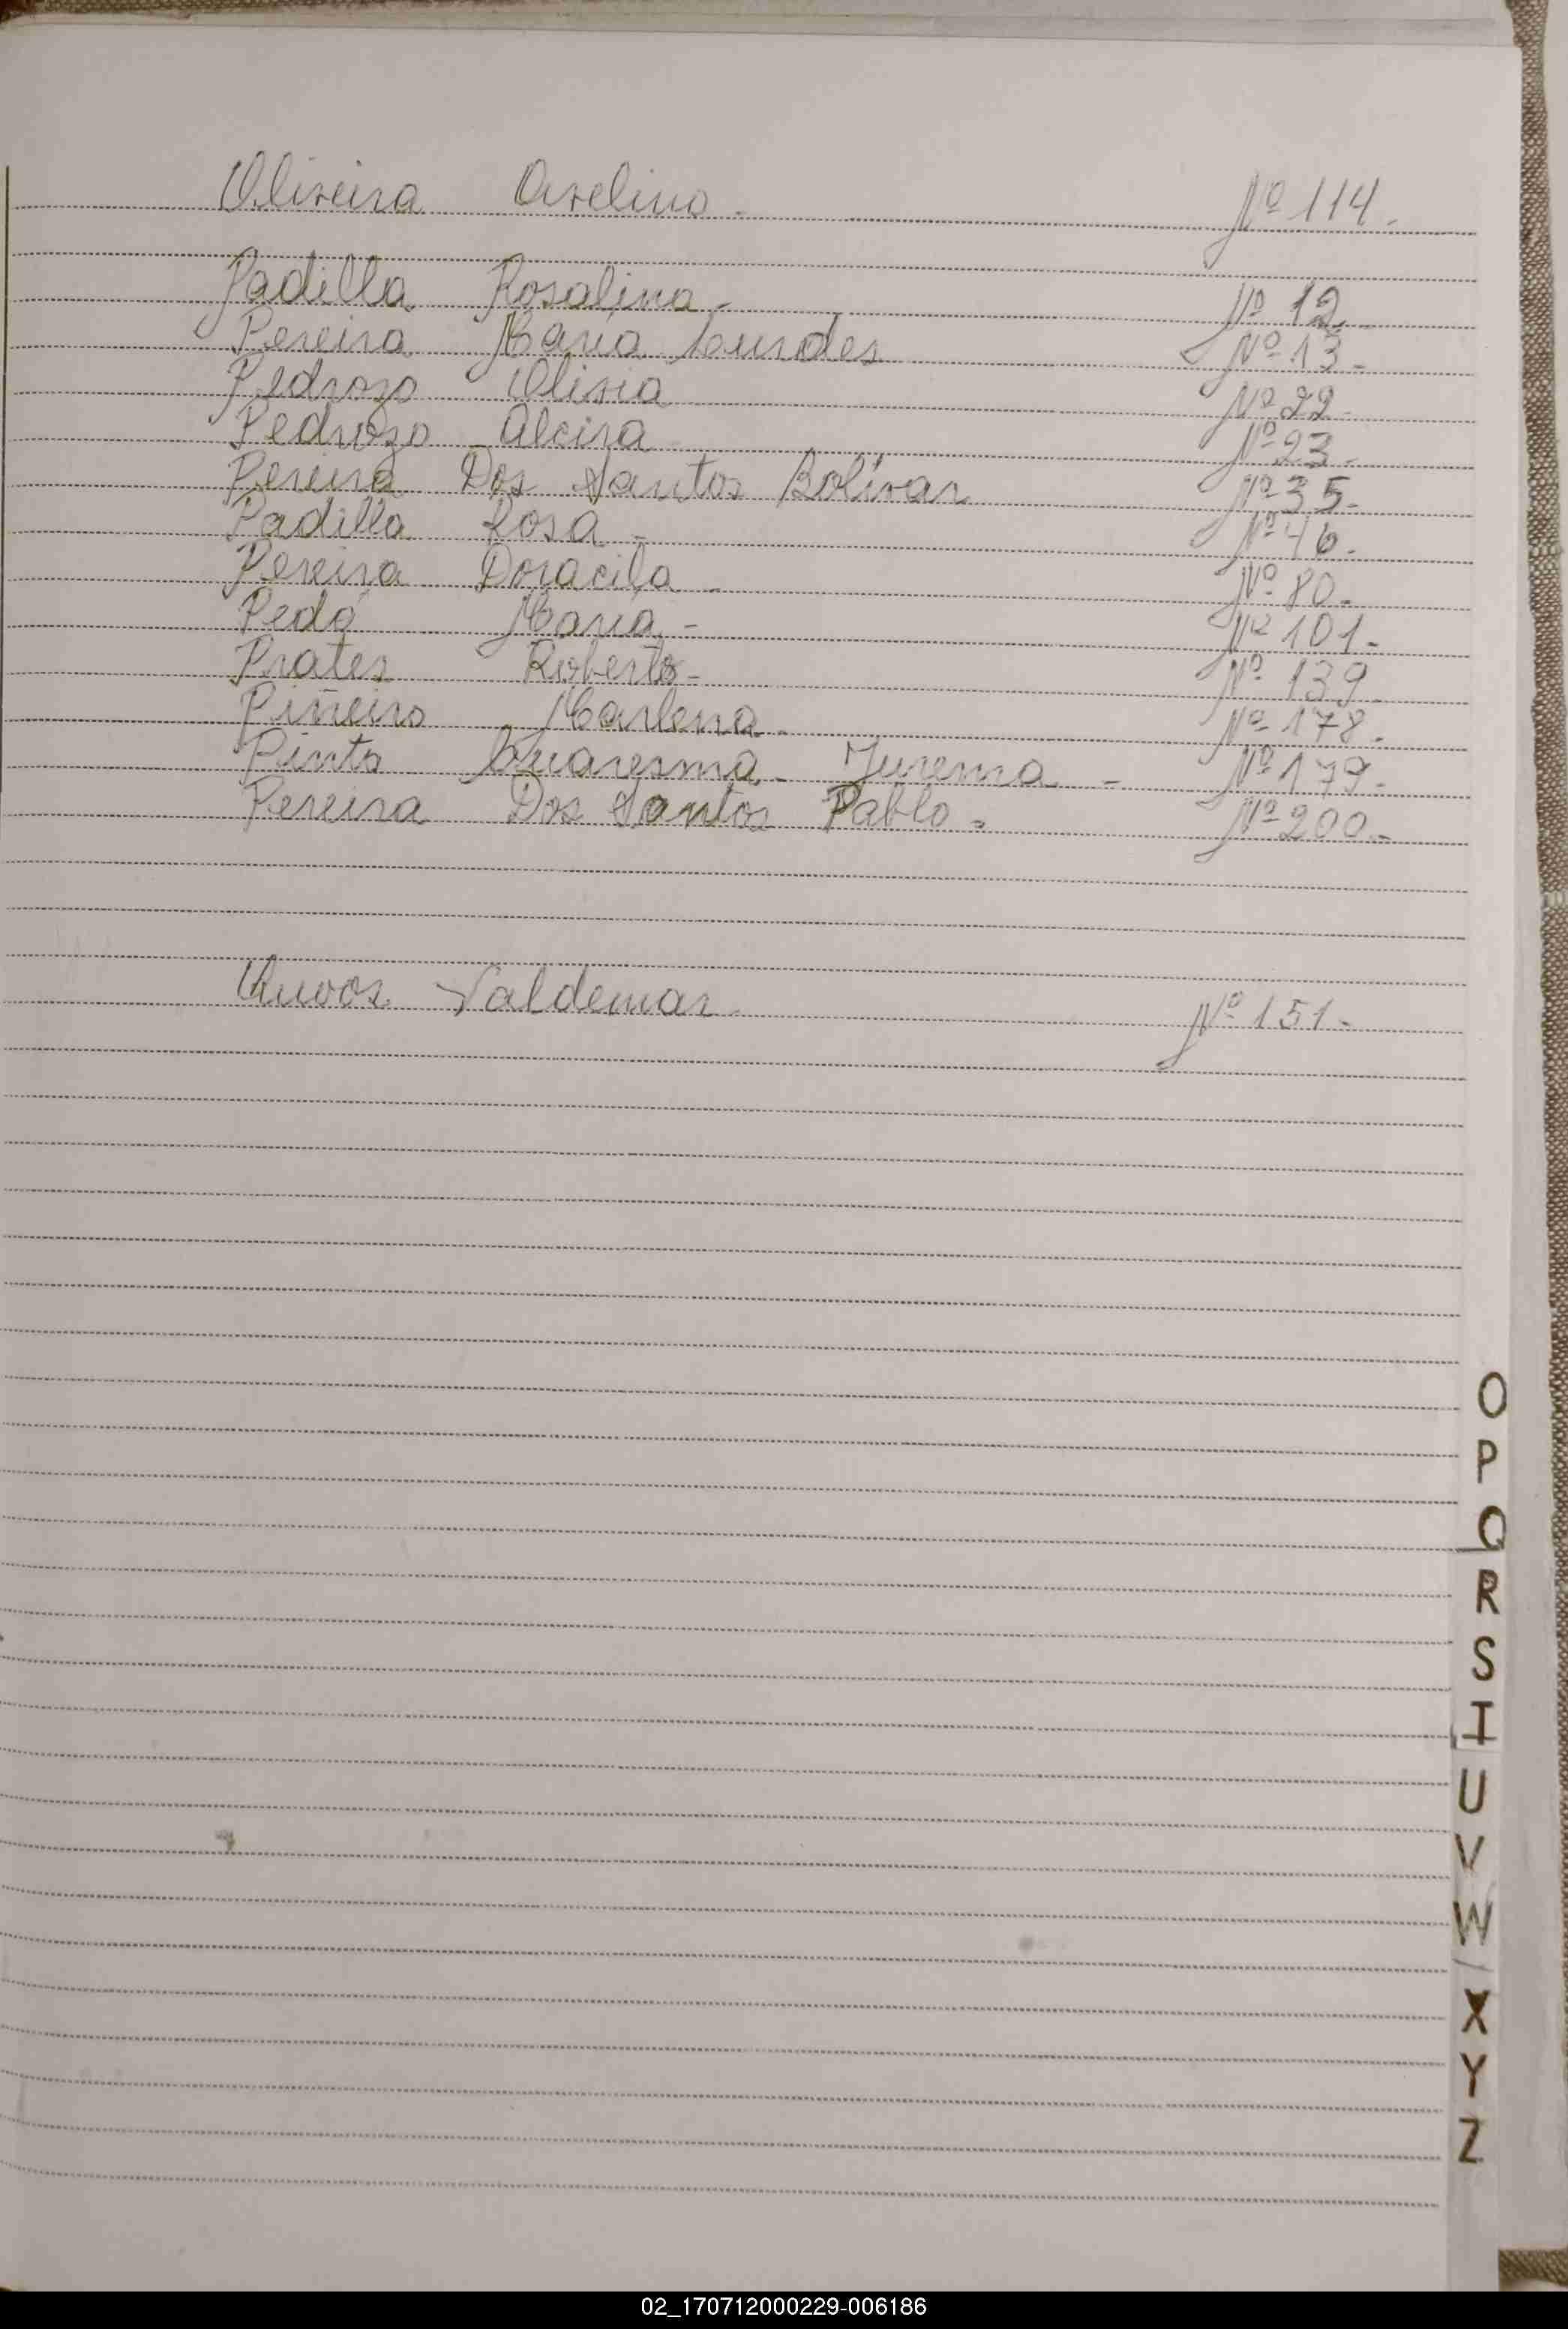 Oliveira Avelino. Nº 114.
Padilla Rosalina - Nº 12.
Pereira María Lurdes Nº 13.
Pedrozo Olivia Nº 22.
Pedrozo Alcira Nº 23.
Pereira Dos Santos Bolívar Nº 35.
Padilla Rosa - Nº 46.
Pereira Doracila - Nº 80.
Pedó María - Nº 101.
Prates Roberto - Nº 139.
Piñeiro Marlena - Nº 178.
Pinto Quaresma - Jurema - Nº 179.
Pereira Dos Santos Pablo - Nº 200.
Valdemar. Nº 151.
O
P
Q
R
S
T
U
V
W
X
Y
Z
02_170712000229-006186